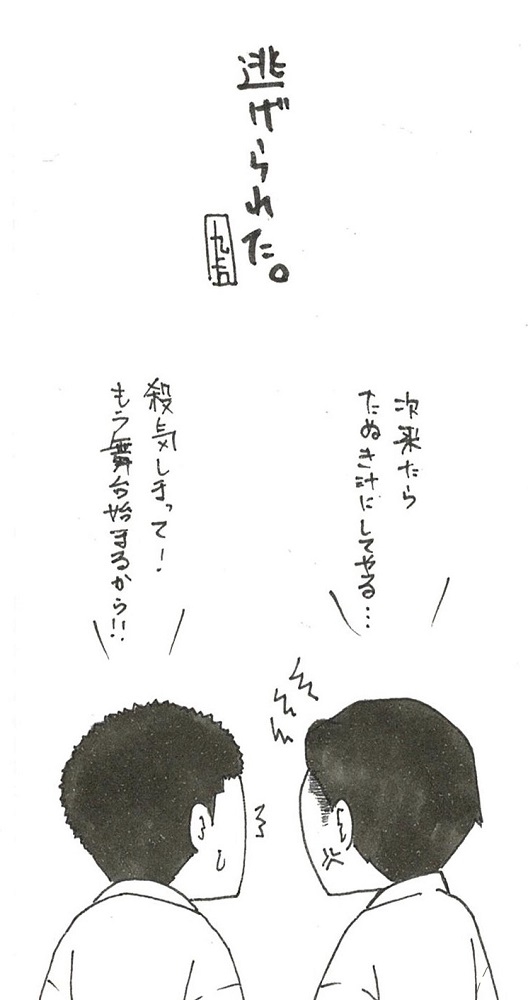 逃げられた。
次来たら
たぬき汁にしてやる…
殺気しまって！
もう舞台始まるから!!